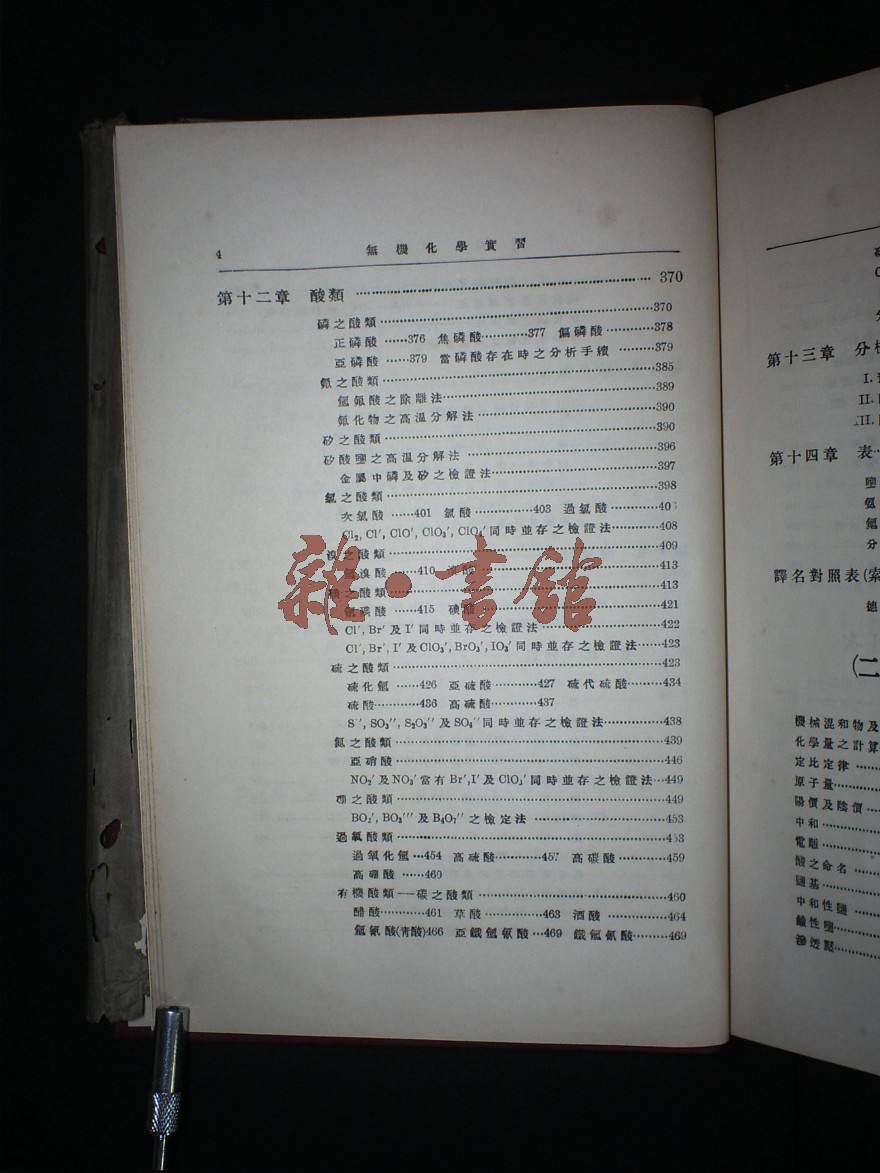 4 無機化學實習
第十二章 酸類 370
磷之酸類 370
正磷酸 376 焦磷酸 377 偏磷酸 378
亞磷酸 379 當磷酸存在時之分析手續 379
氟之酸類 385
氫氟酸之除離法 389
氟化物之高溫分解法 390
矽之酸類 390
矽酸鹽之高溫分解法 396
金屬中磷及矽之檢證法 397
氯之酸類 398
次氯酸 401 氯酸 403 過氯酸
Cl₂, Cl′, ClO′, ClO₃′, ClO₄′同時並存之檢證法 408
溴之酸類 409
氫溴酸 410 溴酸 413
碘之酸類 413
氫碘酸 415 碘酸 421
Cl′, Br′及I′同時並存之檢證法 422
Cl′, Br′, I′及ClO₃′, BrO₃′, IO₃′同時並存之檢證法 423
硫之酸類 423
硫化氫 426 亞硫酸 427 硫代硫酸 434
硫酸 436 高硫酸 437
S″, SO₃″, S₂O₃″及SO₄″同時並存之檢證法 438
氮之酸類 439
亞硝酸 446
NO₂′及NO₃′當有Br′,I′及ClO₃′同時並存之檢證法 449
硼之酸類 449
BO₂′, BO₃‴及B₄O₇″之檢定法 453
過氧酸類 453
過氧化氫 454 高硫酸 457 高碳酸 459
高硼酸 460
有機酸類——碳之酸類 460
醋酸 461 草酸 463 酒酸 464
氫氰酸(青酸)466 亞鐵氫氰酸 469 鐵氫氰酸 469
雜·書館
第十三章 分
I.
II.
第十四章 表
分
譯名對照表(索
(二
機械混和物及
化學量之計算
定比定律
原子量
陽價及陰價
中和
電離
酸之命名
鹽基
中和性鹽
鹼性鹽
滲透壓